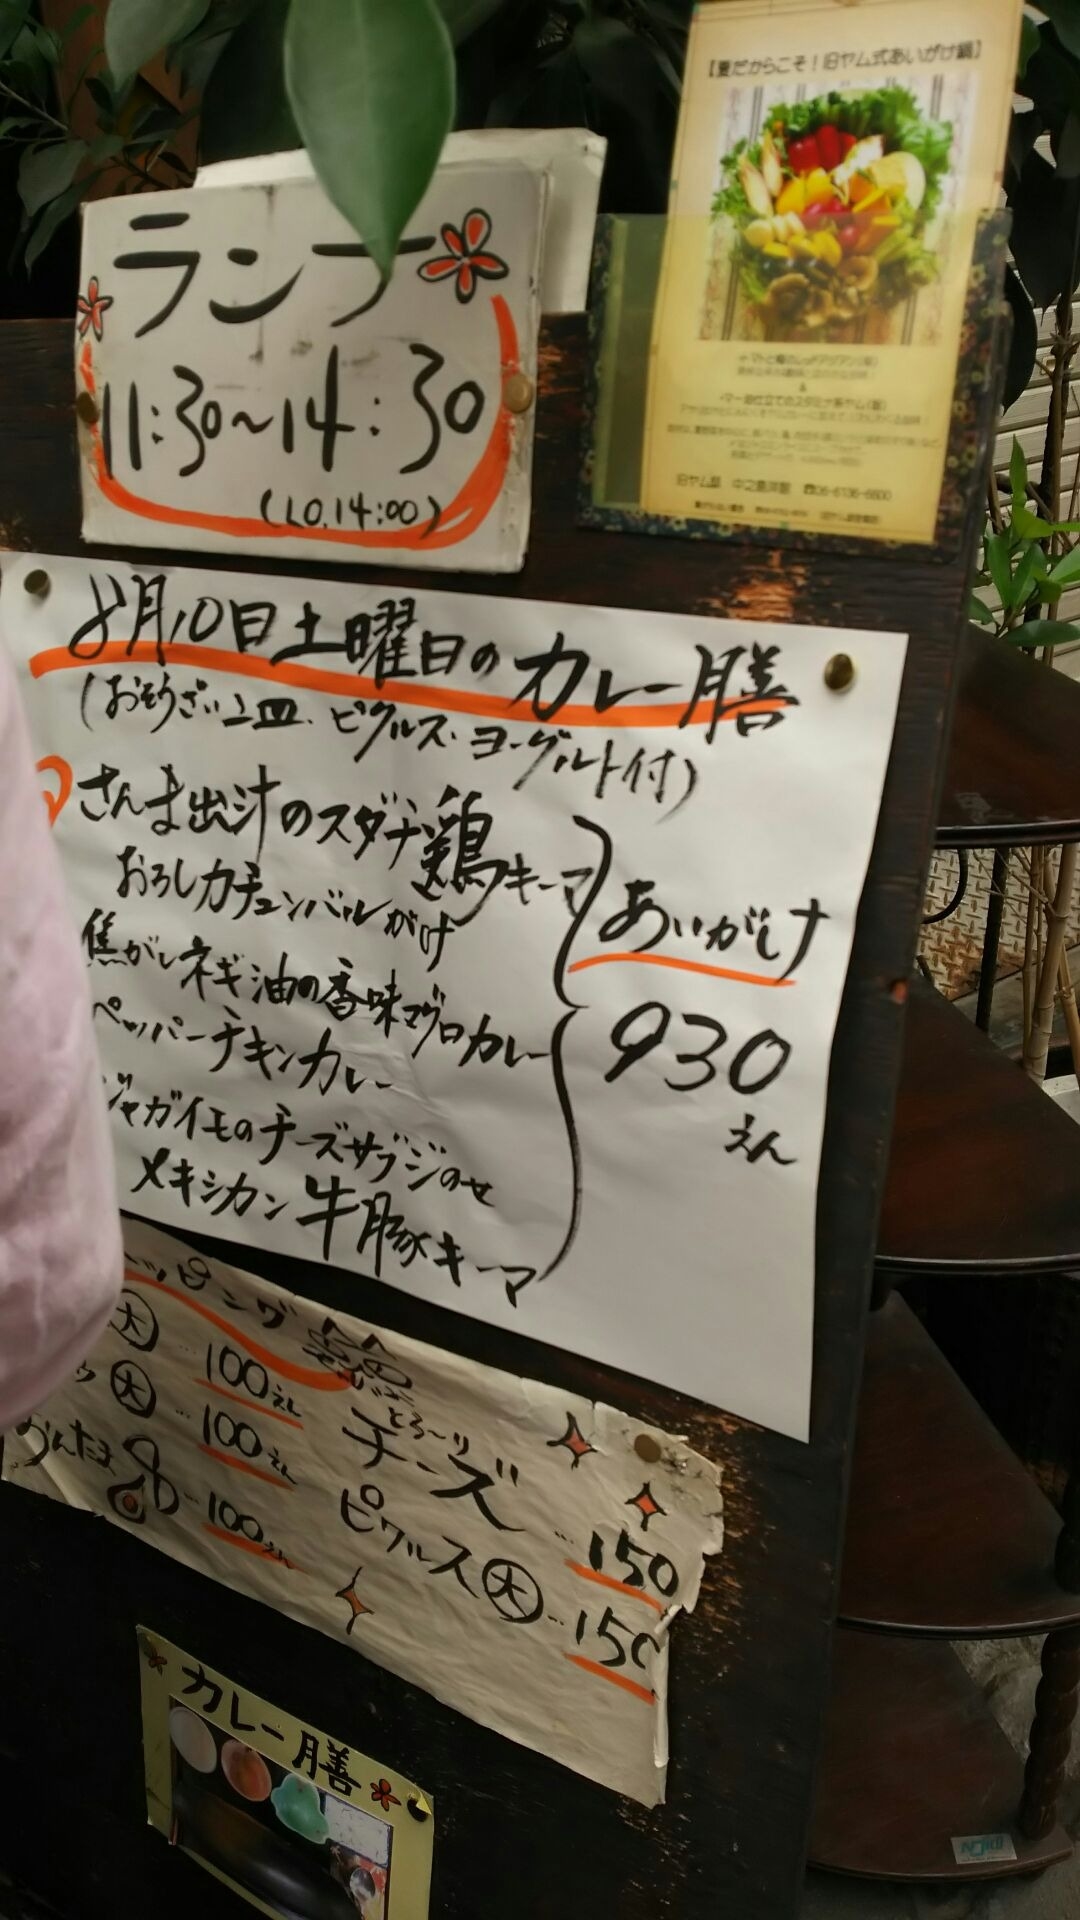 【夏だからこそ！旧ヤム式あいがけ鍋】
&
旧ヤム邸 中之島洋館 ☎06-6136-6600
ランチ
11:30〜14:30
(LO.14:00)
8月10日土曜日のカレー膳
(おそうざい二皿、ピクルス、ヨーグルト付)
さんま出汁のスダチ鶏キーマ
おろしカチュンバルがけ
焦がしネギ油の香味マグロカレー
ペッパーチキンカレー
ジャガイモのチーズサブジのせ
メキシカン牛豚キーマ
あいがけ
930
えん
トッピング
大 … 100えん
大 … 100えん
おんたま … 100えん
とろ〜り
チーズ … 150
ピクルス大 … 150
カレー膳